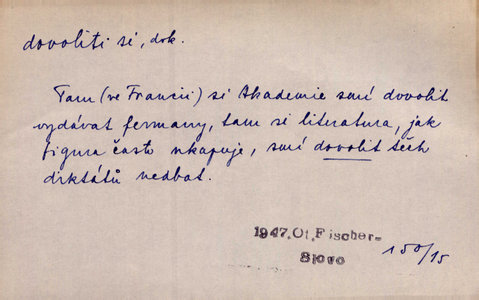 dovoliti si, dok.
Tam (ve Francii) si Akademie smí dovolit
vydávat fermany, tam si literatura, jak
figura často ukazuje, smí dovolit těch
diktátů nedbat.
1947.Ot.Fischer-
Slovo
150/15